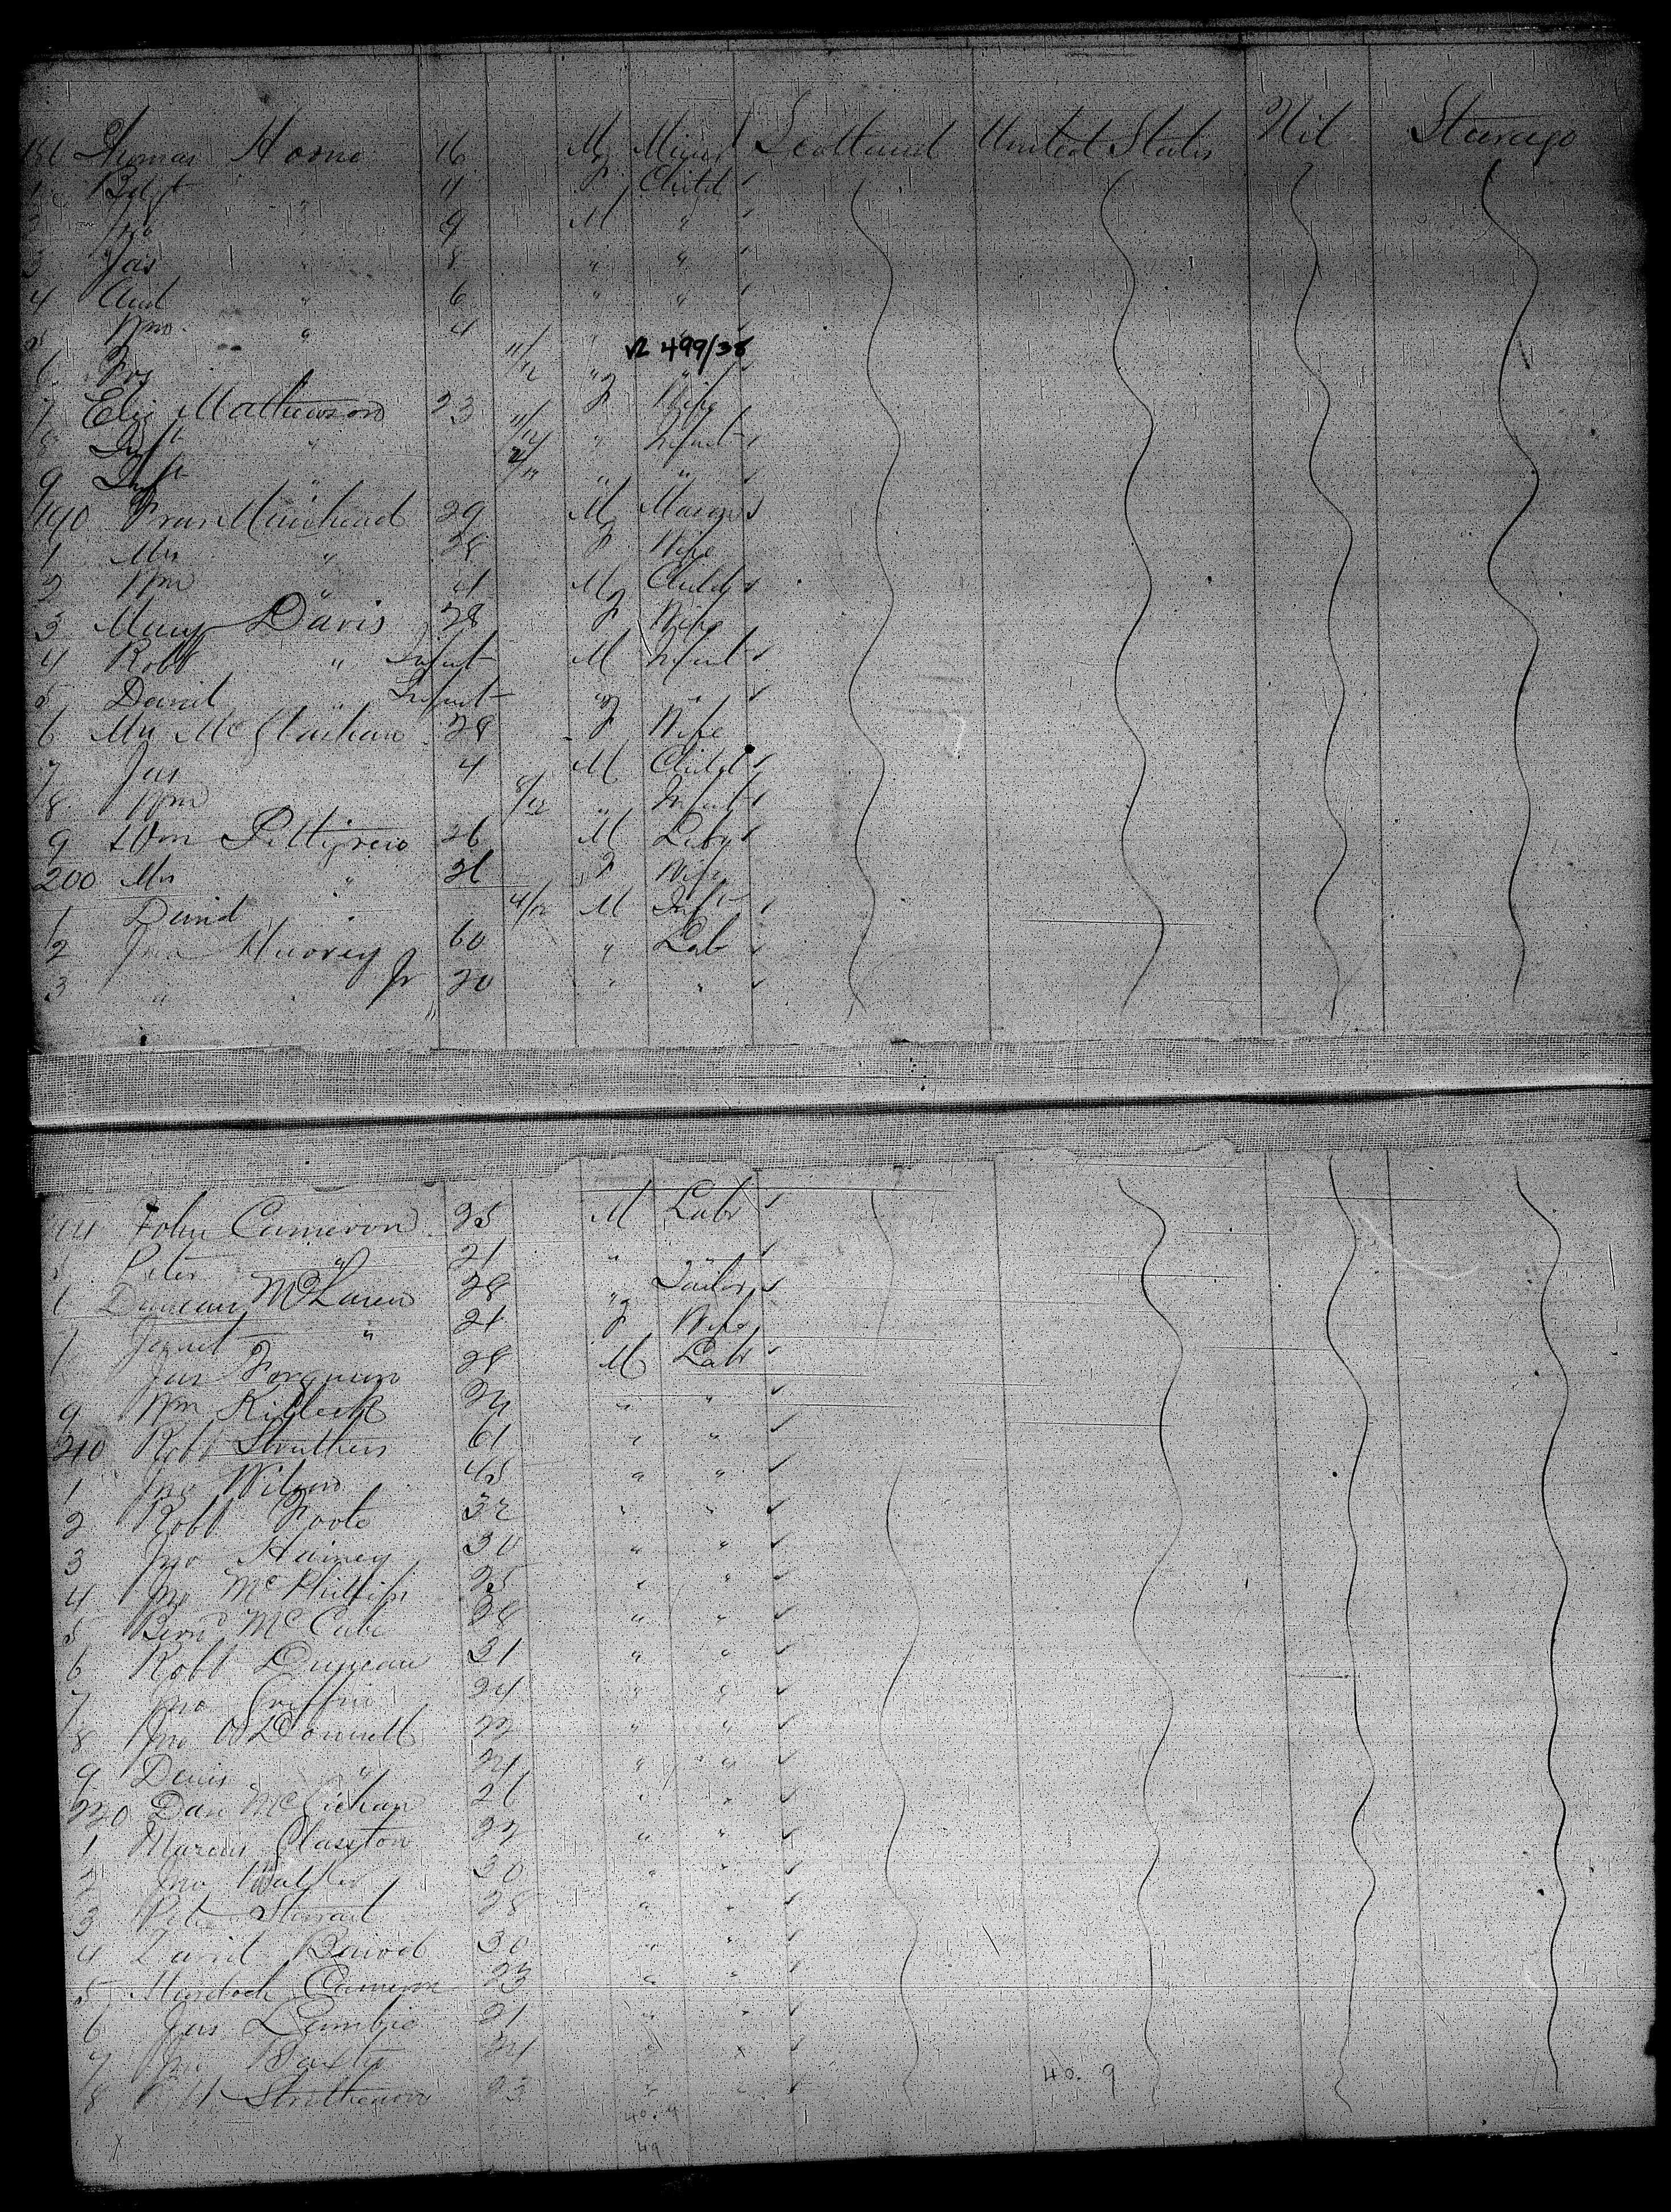 Horne 16 M Miner Scotland United States Nil Steerage
" 4 F Child
2 Jno " 9 M "
3 Jas " 8 " "
4 And " 6 " "
5 Wm " 4 " "
V2 499/38
6 11/12 " "
7 Eliz Mathewson 23 F Wife
8 Inft " 11/12 " Infant
9 Inft " "
190 Fran Muirhead 29 M Mason
1 Mrs " 28 F Wife
2 Wm " 4 M Child
3 Mary Davis 28 F Wife
4 Robt " Infant M Infant
5 David " Infant " "
6 Mrs 28 F Wife
7 Jas 4 M Child
8 Wm 8/12 " Infant
9 Wm Pettigrew 26 M Labr
200 Mrs " 26 F Wife
1 David 4/12 M Inft
2 Jno 60 " Lab
3 " Jr 20 " "
John Cameron 25 M Labr
5 Peter " 21 "
Duncan McLaren 28 " Tailor
7 Janet " 21 F Wife
Jas Ferguson 28 M Labr
9 Wm " "
210 Robt Struthers 61 " "
1 Jno Wilson 45 " "
2 Robt Foote 32 " "
3 Jno Hainey 30 " "
4 Jno McPhillips 25 " "
5 Bernd McCabe 28 " "
6 Robt Duncan 21 " "
7 Jno Griffin 24 " "
8 Jno O'Donnell 22 " "
9 Denis " 21 " "
220 Dan 21 " "
1 Claxton 22 " "
2 Jno Walker 30 " "
3 Peter Stewart 28 " "
4 David Baird 30 " "
5 Murdoch Cameron 23 " "
6 Jas Lambie 21 " "
7 Jno Baxter " "
8 23 " "
40. 9
49